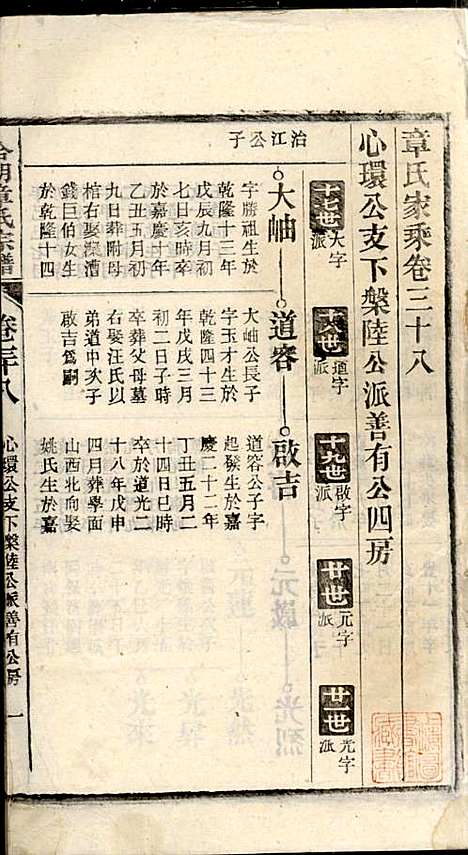 章氏家乘卷三十八
心環公支下槃陸公派善有公四房
十七世 大字派
十八世 道字派
十九世 啟字派
廿世 元字派
廿一世 光字派
治江公子
大岫
字勝祖生於
乾隆十三年
戊辰九月初
七日亥時卒
於嘉慶十年
乙丑五月初
九日葬附母
棺右娶深漕
錢巨伯女生
於乾隆十四
道容
大岫公長子
字玉才生於
乾隆四十三
年戊戌三月
初二日子時
卒葬父母墓
右娶汪氏以
弟道中次子
啟吉爲嗣
啟吉
道容公子字
起發生於嘉
慶二十二年
丁丑五月二
十四日巳時
卒於道光二
十八年戊申
四月葬學面
山西北向娶
姚氏生於嘉
章氏宗譜
卷三十八
心環公支下槃陸公派善有公房
一